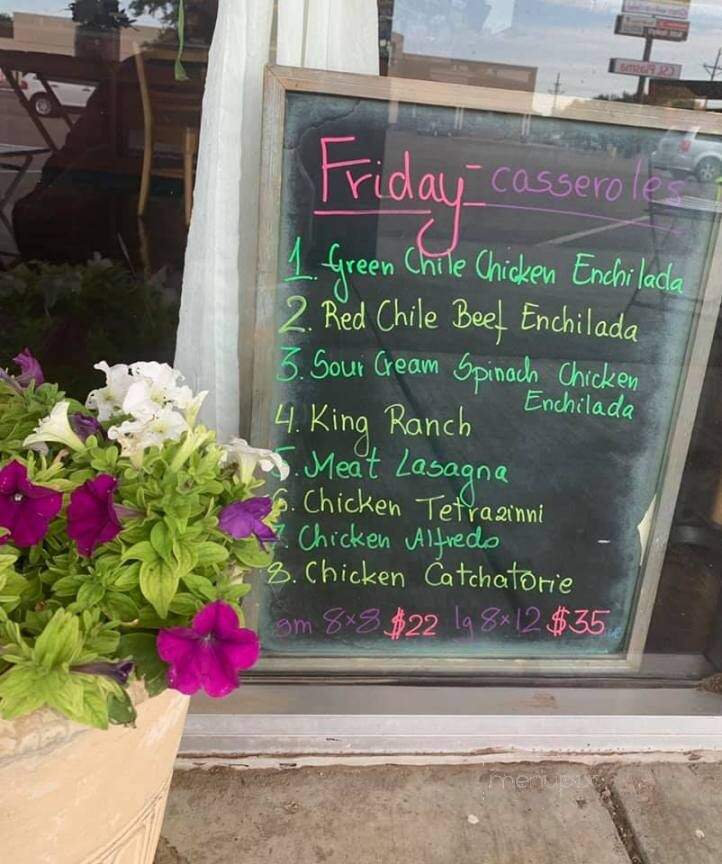 Friday- casseroles
1. Green Chile Chicken Enchilada
2. Red Chile Beef Enchilada
3. Sour Cream Spinach Chicken
Enchilada
4. King Ranch
5. Meat Lasagna
6. Chicken Tetrazinni
7. Chicken Alfredo
8. Chicken Catchatorie
sm 8x8 $22 lg 8x12 $35
menupix